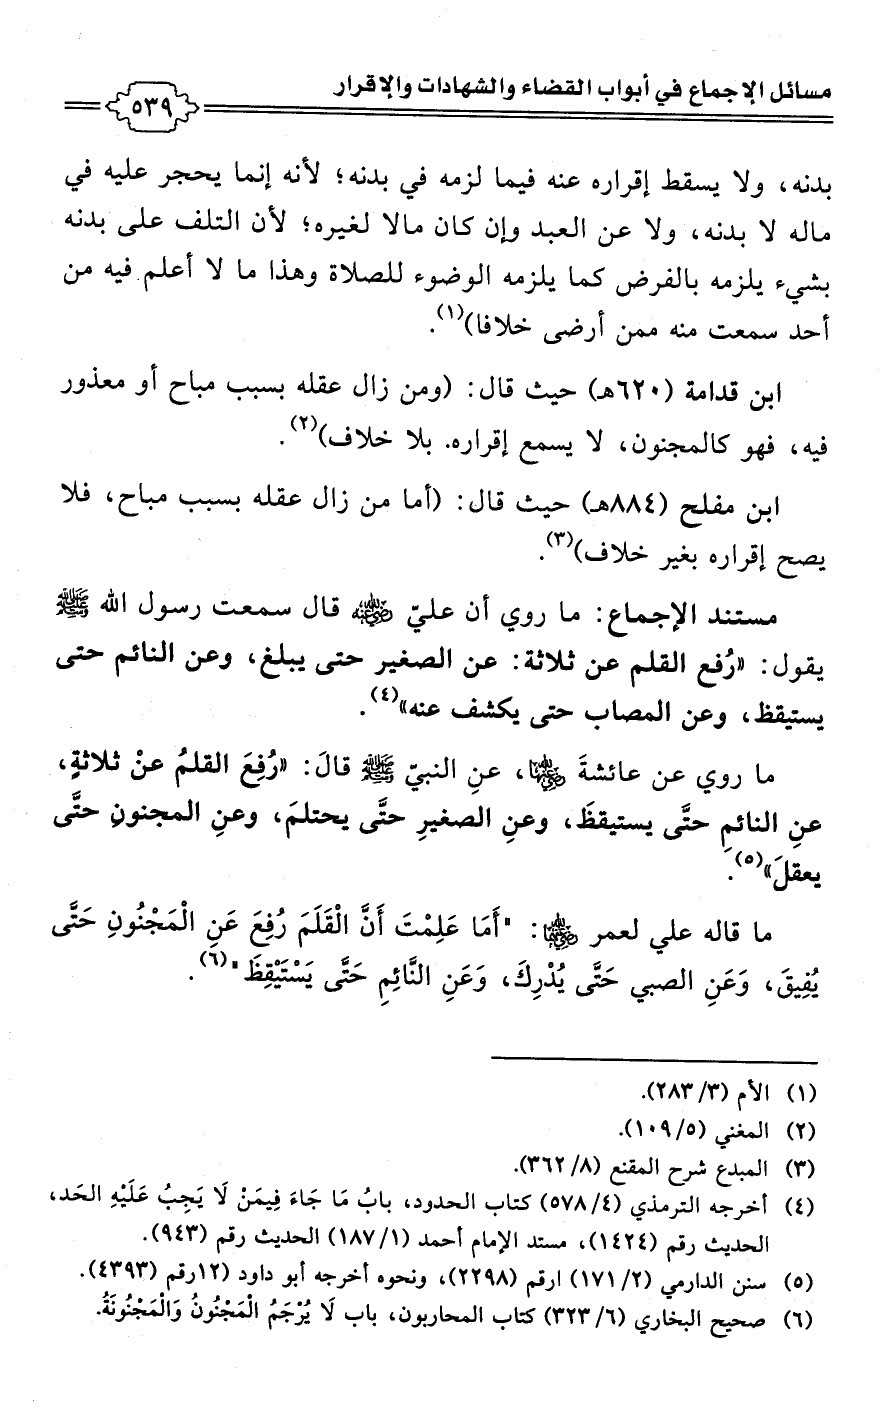 مسائل الإجماع في أبواب القضاء والشهادات والإقرار
٥٣٩
بدنه، ولا يسقط إقراره عنه فيما لزمه في بدنه؛ لأنه إنما يحجر عليه في
ماله لا بدنه، ولا عن العبد وإن كان مالا لغيره؛ لأن التلف على بدنه
بشيء يلزمه بالفرض كما يلزمه الوضوء للصلاة وهذا ما لا أعلم فيه من
أحد سمعت منه ممن أرضى خلافا)(١).
ابن قدامة (٦٢٠هـ) حيث قال: (ومن زال عقله بسبب مباح أو معذور
فيه، فهو كالمجنون، لا يسمع إقراره. بلا خلاف)(٢).
ابن مفلح (٨٨٤هـ) حيث قال: (أما من زال عقله بسبب مباح، فلا
يصح إقراره بغير خلاف)(٣).
مستند الإجماع: ما روي أن عليّ رضي الله عنه قال سمعت رسول الله ﷺ
يقول: «رُفع القلم عن ثلاثة: عن الصغير حتى يبلغ، وعن النائم حتى
يستيقظ، وعن المصاب حتى يكشف عنه»(٤).
ما روي عن عائشةَ رضي الله عنها، عنِ النبيّ ﷺ قالَ: «رُفِعَ القلمُ عنْ ثلاثةٍ،
عنِ النائمِ حتَّى يستيقظَ، وعنِ الصغيرِ حتَّى يحتلمَ، وعنِ المجنونِ حتَّى
يعقلَ»(٥).
ما قاله علي لعمر رضي الله عنهما: "أَمَا عَلِمْتَ أَنَّ الْقَلَمَ رُفِعَ عَنِ الْمَجْنُونِ حَتَّى
يُفِيقَ، وَعَنِ الصبي حَتَّى يُدْرِكَ، وَعَنِ النَّائِمِ حَتَّى يَسْتَيْقِظَ"(٦).
(١) الأم (٣/ ٢٨٣).
(٢) المغني (٥/ ١٠٩).
(٣) المبدع شرح المقنع (٨/ ٣٦٢).
(٤) أخرجه الترمذي (٤/ ٥٧٨) كتاب الحدود، بابُ مَا جَاءَ فِيمَنْ لَا يَجِبُ عَلَيْهِ الحَد،
الحديث رقم (١٤٢٤)، مستد الإمام أحمد (١/ ١٨٧) الحديث رقم (٩٤٣).
(٥) سنن الدارمي (٢/ ١٧١) ارقم (٢٢٩٨)، ونحوه أخرجه أبو داود (١٢رقم (٤٣٩٣).
(٦) صحيح البخاري (٦/ ٣٢٣) كتاب المحاربون، باب لَا يُرْجَمُ الْمَجْنُونُ وَالْمَجْنُونَةُ.